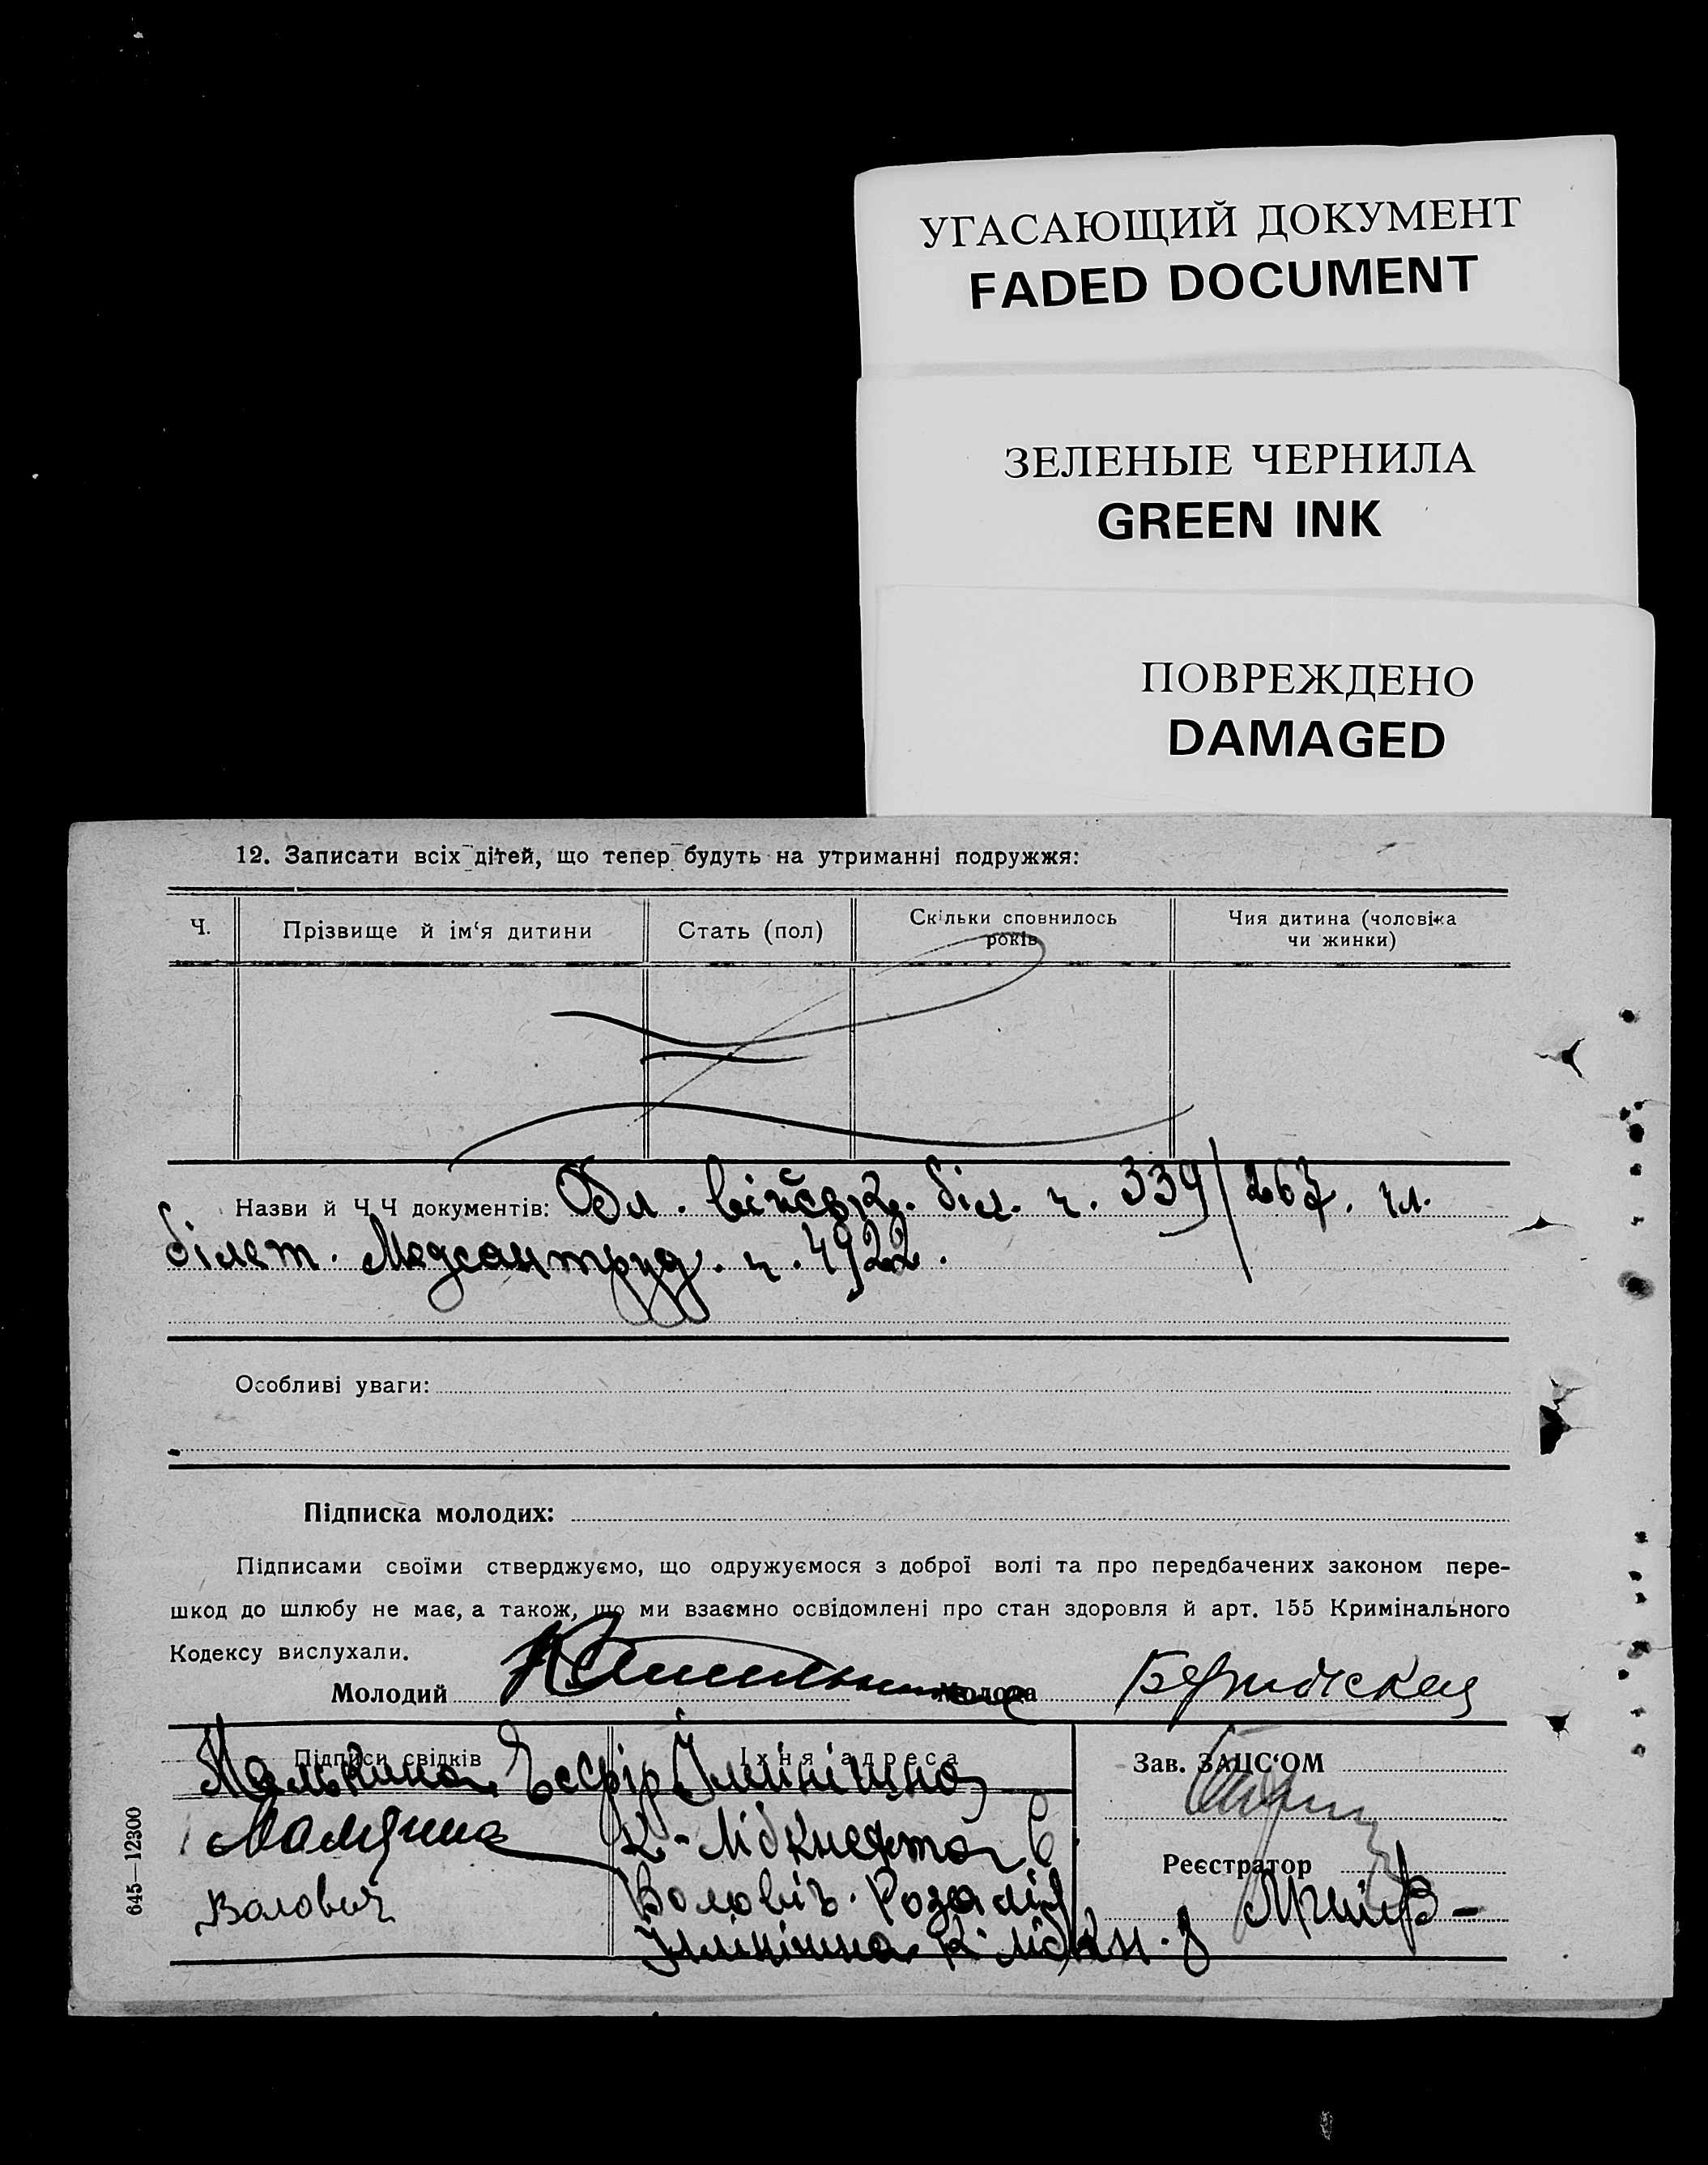 УГАСАЮЩИЙ ДОКУМЕНТ
FADED DOCUMENT
ЗЕЛЕНЫЕ ЧЕРНИЛА
GREEN INK
ПОВРЕЖДЕНО
DAMAGED
12. Записати всіх дітей, що тепер будуть на утриманні подружжя:
Ч.
Прізвище й ім‘я дитини
Стать (пол)
Скільки сповнилось
років
Чия дитина (чоловіка
чи жинки)
Назви й Ч Ч документів: Обл. військ. біл. ч. 339/267. чл.
білет. Медсантруд. ч. 4922.
Особливі уваги:
Підписка молодих:
Підписами своїми стверджуємо, що одружуємося з доброї волі та про передбачених законом пере-
шкод до шлюбу не має, а також, що ми взаємно освідомлені про стан здоровля й арт. 155 Кримінального
Кодексу вислухали.
Молодий
Молода
Підписи свідків
Їхня адреса
Зав. ЗАЦС‘ОМ
Малькина Есфір
Малкина
К-Лібкнехта 6
Реєстратор
Волович
Воловіч. Розалія
К Лібкн. 8
645—12300